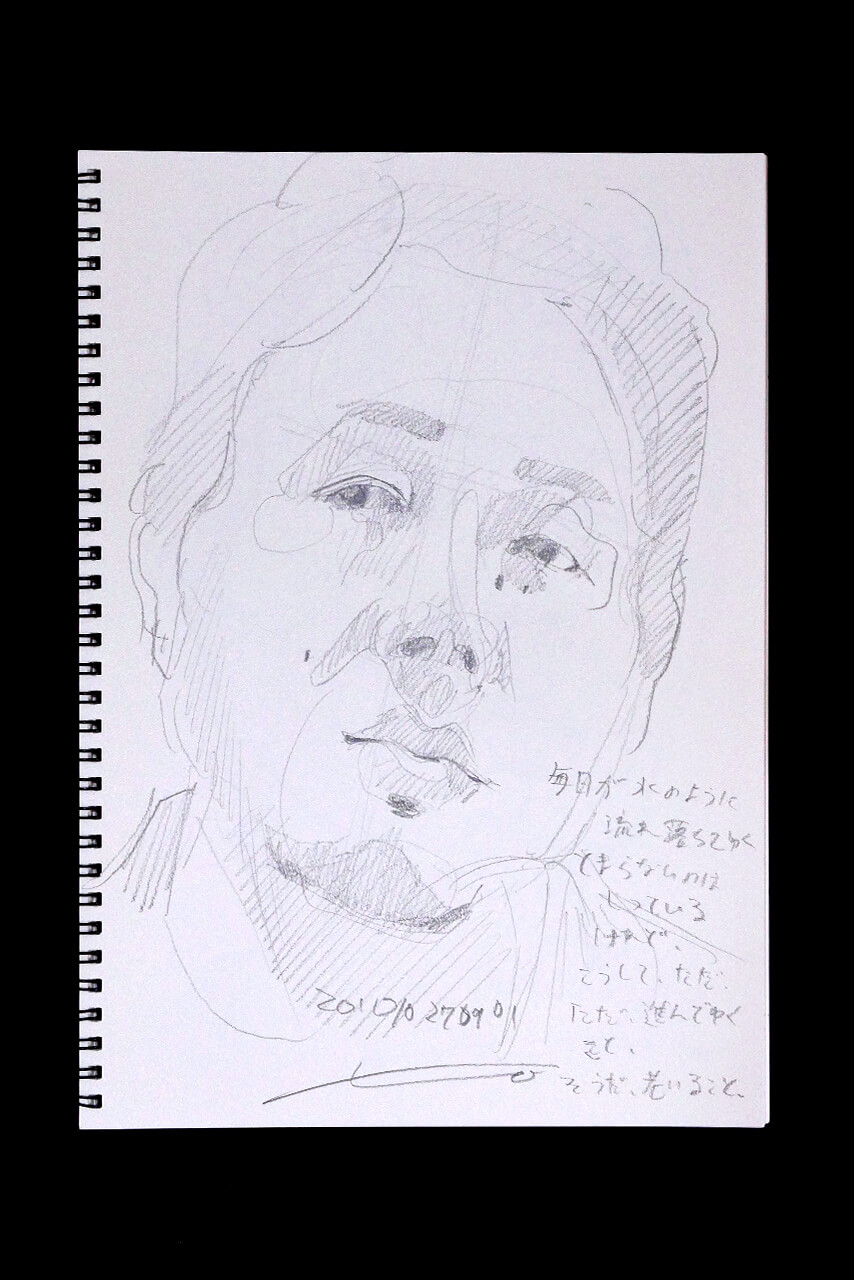 毎日が水のように
流れ落ちてゆく
とまらないのは
しっている
けれど、
こうして、ただ、
ただ、進んでゆく
こと、
そうだ、老いること、
201010270901